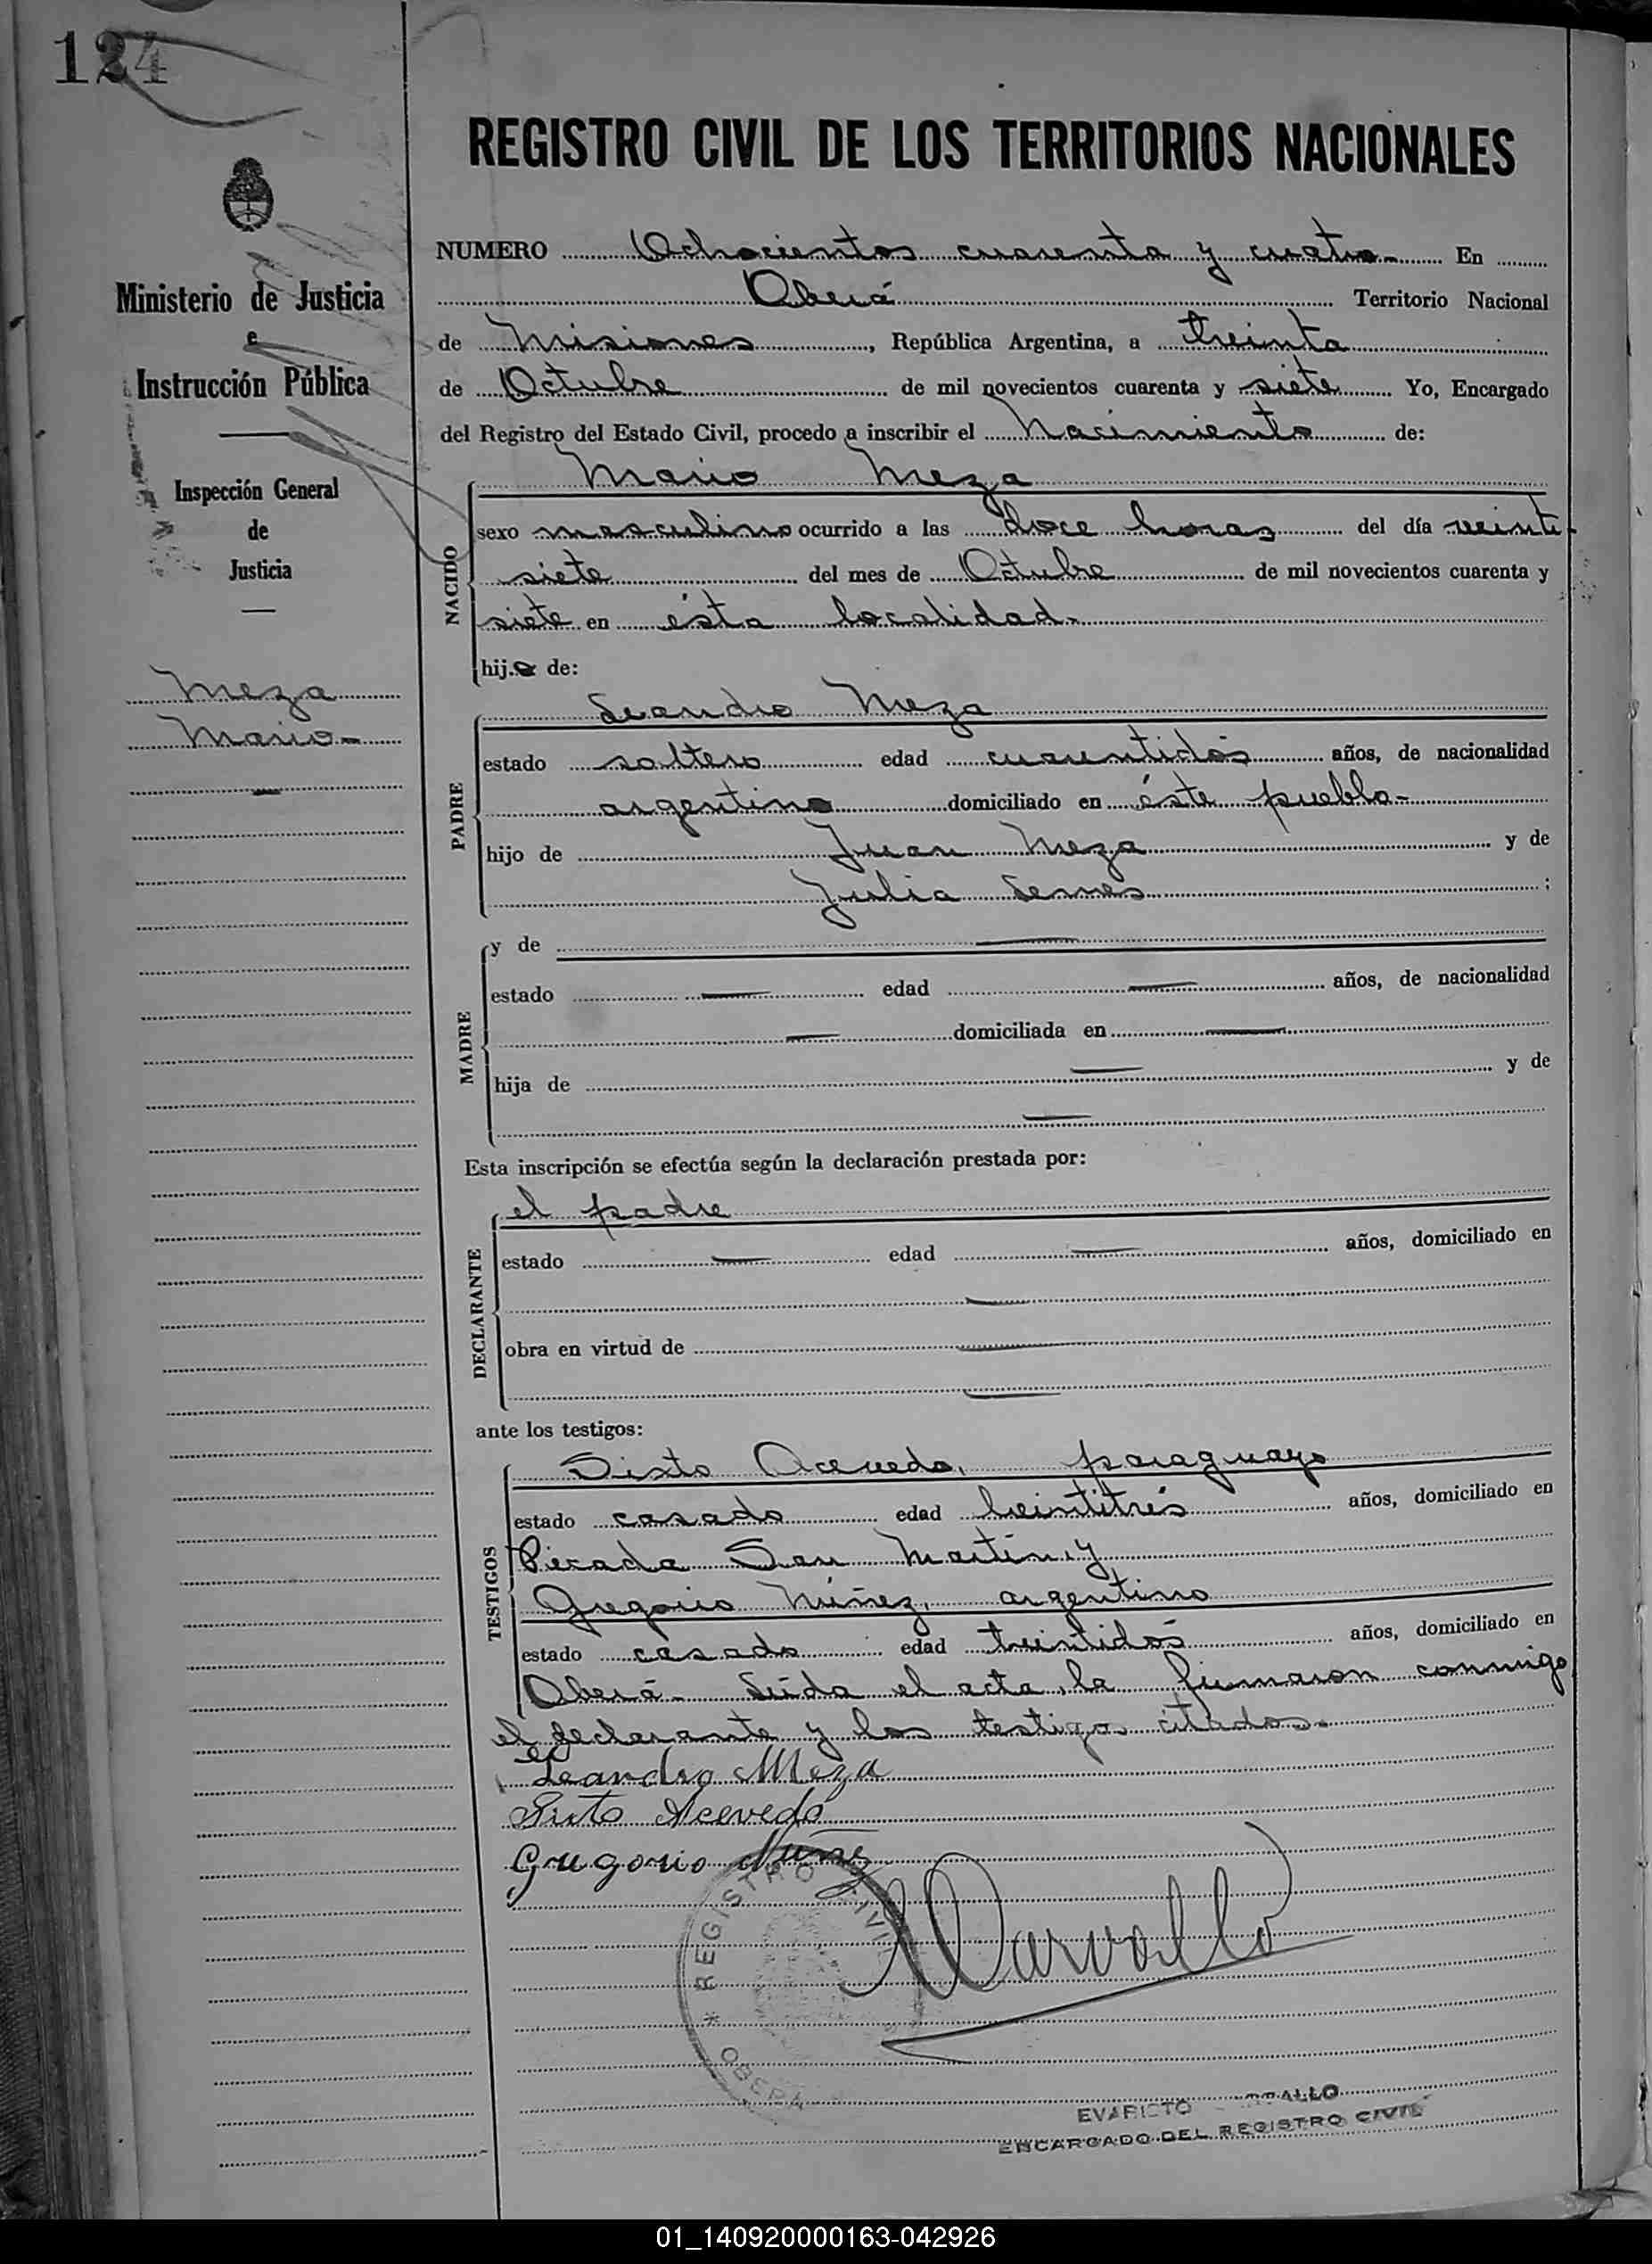 124
REGISTRO CIVIL DE LOS TERRITORIOS NACIONALES
Ministerio de Justicia
e
Instrucción Pública
Inspección General
de
Justicia
Meza
Mario
NUMERO Ochocientos cuarenta y cuatro En
Oberá Territorio Nacional
de Misiones, República Argentina, a treinta
de Octubre de mil novecientos cuarenta y siete Yo, Encargado
del Registro del Estado Civil, procedo a inscribir el Nacimiento de:
NACIDO
Mario Meza
sexo masculino ocurrido a las doce horas del día veinti
siete del mes de Octubre de mil novecientos cuarenta y
siete en ésta localidad.
hijo de:
PADRE
Leandro Meza
estado soltero edad cuarentidós años, de nacionalidad
argentino domiciliado en éste pueblo
hijo de Juan Meza y de
Julia ;
MADRE
y de
estado edad años, de nacionalidad
domiciliada en
hija de y de
Esta inscripción se efectúa según la declaración prestada por:
DECLARANTE
el padre
estado edad años, domiciliado en
obra en virtud de
ante los testigos:
TESTIGOS
Sixto Acevedo, paraguayo
estado casado edad veintitrés años, domiciliado en
Picada San Martín y
Gregorio Núñez, argentino
estado casado edad treintidós años, domiciliado en
Oberá - Leída el acta, la firmaron conmigo
el declarante y los testigos citados.
Leandro Meza
Sixto Acevedo
Gregorio Núñez
REGISTRO CIVIL
OBERA
ENCARGADO DEL REGISTRO CIVIL
01_140920000163-042926